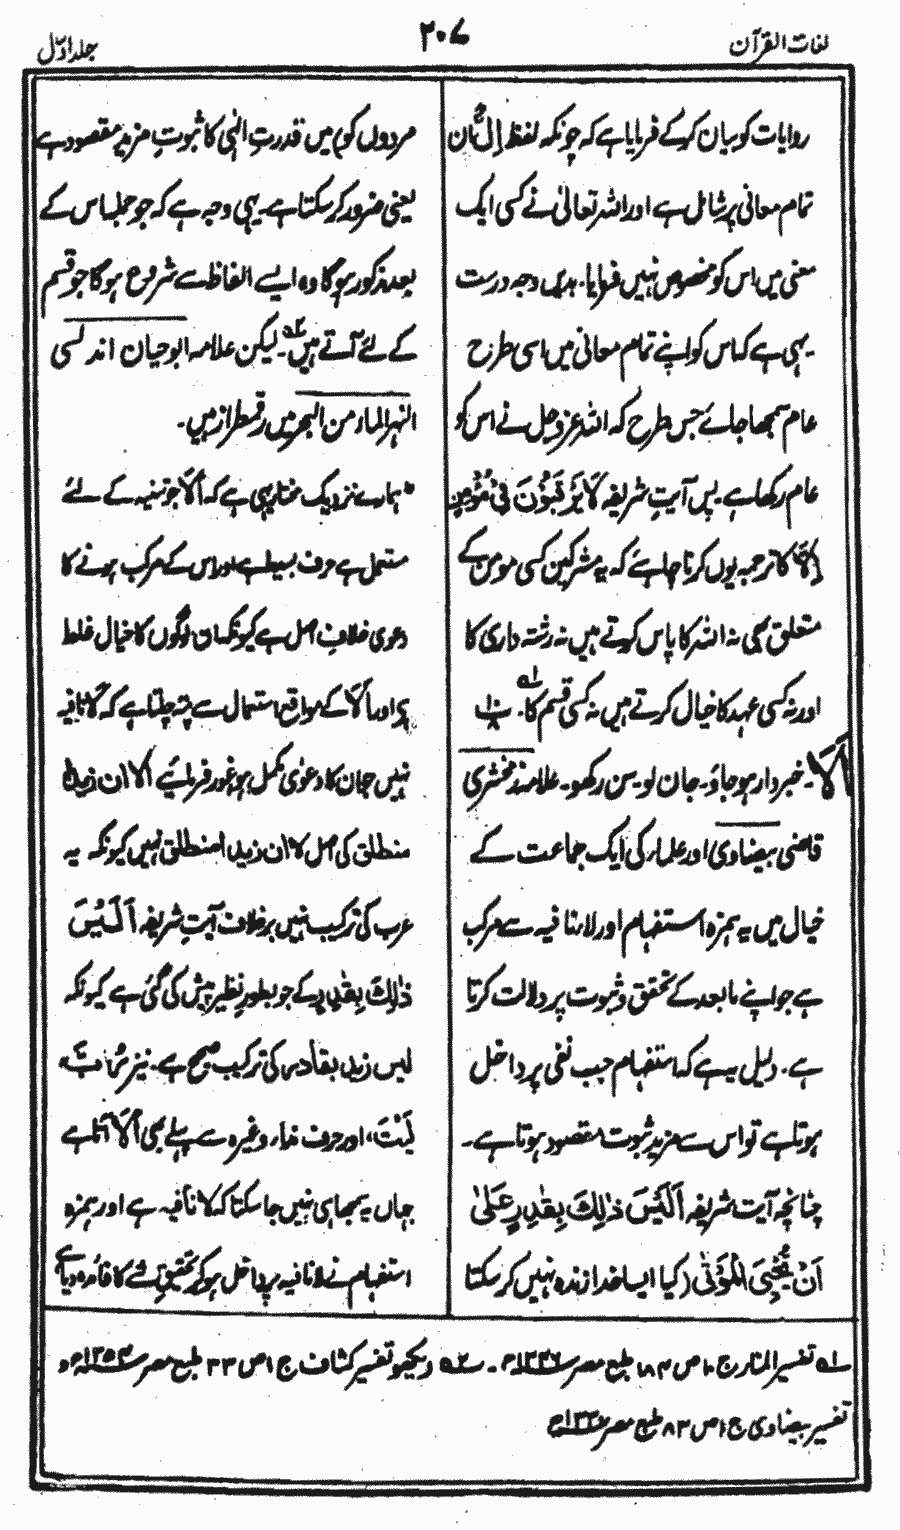 لغات القرآن
۲۰۷
جلد اوّل
روایات کو بیان کرکے فرمایا ہے کہ چونکہ لفظ اِلّ ان
تمام معانی پر شامل ہے اور اللہ تعالیٰ نے کسی ایک
معنی میں اس کو مخصوص نہیں فرمایا۔ بدیں وجہ درست
یہی ہے کہ اس کو اپنے تمام معانی میں اسی طرح
عام سمجھا جائے جس طرح کہ اللہ عزوجل نے اس کو
عام رکھا ہے۔ پس آیتِ شریفہ لَا یَرْقُبُوْنَ فِیْ مُؤْمِنٍ
اِلًّا کا ترجمہ یوں کرنا چاہئے کہ یہ مشرکین کسی مومن کے
متعلق بھی نہ اللہ کا پاس کرتے ہیں نہ رشتہ داری کا
اور نہ کسی عہد کا خیال کرتے ہیں نہ کسی قسم کا۔ لہ
اَلَا۔ خبردار ہوجاؤ۔ جان لو۔ سن رکھو۔ علامہ زمخشری
قاضی بیضاوی اور علماء کی ایک جماعت کے
خیال میں یہ ہمزہ استفہام اور لا، نافیہ سے مرکب
ہے جو اپنے مابعد کے تحقق و ثبوت پر دلالت کرتا
ہے۔ دلیل یہ ہے کہ استفہام جب نفی پر داخل
ہوتا ہے تو اس سے مزید ثبوت مقصود ہوتا ہے۔
چنانچہ آیت شریفہ اَلَیْسَ ذٰلِكَ بِقٰدِرٍ عَلٰی
اَنْ یُّحْیِیَ الْمَوْتٰی (کیا ایسا خدا زندہ نہیں کر سکتا
مردوں کو) میں قدرتِ الٰہی کا ثبوتِ مزید مقصود ہے
یعنی ضرور کر سکتا ہے۔ یہی وجہ ہے کہ جو جملہ اس کے
بعد مذکور ہوگا وہ ایسے الفاظ سے شروع ہوگا جو قسم
کے لئے آتے ہیں۔ ۲ہ لیکن علامہ ابو حیان اندلسی
النہر الماء من البحر میں رقمطراز ہیں۔
"ہمارے نزدیک مختار یہی ہے کہ اَلَا جو تنبیہ کے لئے
مستعمل ہے حرف بسیط ہے اور اس کے مرکب ہونے کا
دعویٰ خلافِ اصل ہے کیونکہ ان لوگوں کا خیال غلط
ہے اور اَلَا کے مواقع استعمال سے پتہ چلتا ہے کہ لا نافیہ
نہیں جہاں کا دعویٰ مکمل ہو غور فرمائیے اَلَا ان زیدا
منطلق کی اصل لا ان زیدا منطلق نہیں کیونکہ یہ
عرب کی ترکیب نہیں برخلاف آیتِ شریفہ اَلَیْسَ
ذٰلِكَ بِقٰدِرٍ کے جو بطور نظیر پیش کی گئی ہے کیونکہ
لیس زید بقادر کی ترکیب صحیح ہے۔ نیز رُبَّ
لَیْتَ، اور حرف نداء وغیرہ سے پہلے بھی اَلَا آتا ہے
جہاں یہ سمجھا ہی نہیں جا سکتا کہ لا نافیہ ہے اور ہمزہ
استفہام نے لا نافیہ پر داخل ہو کر تحقیق شے کا فائدہ دیا ہے
لہ تفسیر المنار ج ۱۰ ص ۱۸۴ طبع مصر ۔ ۲ہ دیکھو تفسیر کشاف ج ۱ ص ۳۳ طبع مصر ۱۳۵۴ھ و
تفسیر بیضاوی ج ۱ ص ۸۳ طبع مصر